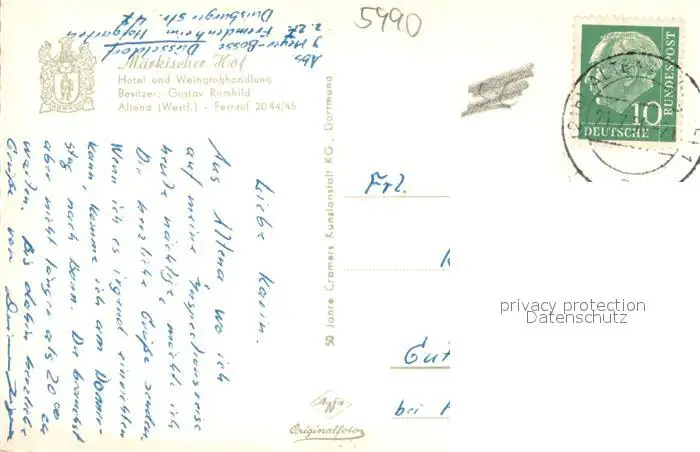 Abs.
J. Meyer-Bosse Düsseldorf
z. Zt. Fremdenheim Hofgarten
Duisburger Str. 47
5990
Märkischer Hof
Hotel und Weingroßhandlung
Besitzer: Gustav Romhild
Altena (Westf.) - Fernruf 20 44/45
Liebe Karin.
Aus Altena wo ich
auf meine Inspektionsreise
heute nächtige möchte ich
Dir herzliche Grüße senden.
Wenn ich es irgend einrichten
kann, komme ich am Donners-
tag nach Bonn. Du brauchst
aber nicht länger als 20 00 zu
warten. Bis dahin herzliche
Grüße von
50 Jahre Cramers Kunstanstalt KG., Dortmund
Frl.
Gut
bei
Agfa
Originalfoto
10
DEUTSCHE
BUNDESPOST
privacy protection
Datenschutz